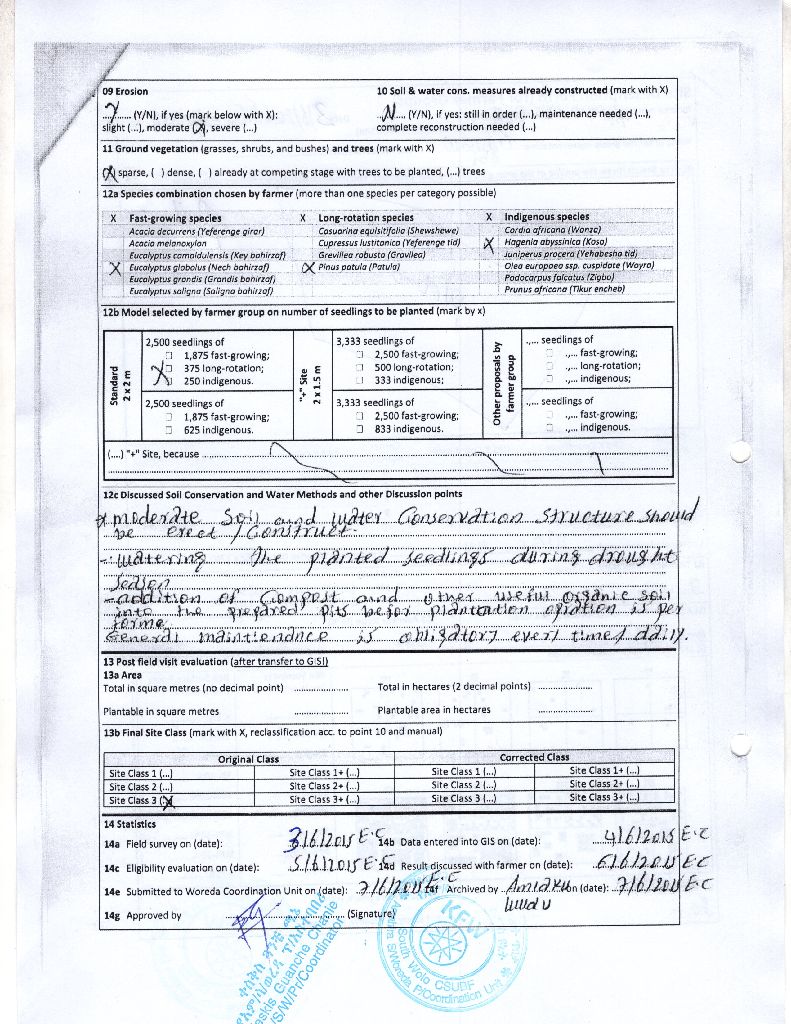 09 Erosion
10 Soil & water cons. measures already constructed (mark with X)
..Y.... (Y/N), if yes (mark below with X):
..N.... (Y/N), if yes: still in order (...), maintenance needed (...),
slight (...), moderate (X), severe (...)
complete reconstruction needed (...)
11 Ground vegetation (grasses, shrubs, and bushes) and trees (mark with X)
(X) sparse, ( ) dense, ( ) already at competing stage with trees to be planted, (...) trees
12a Species combination chosen by farmer (more than one species per category possible)
X Fast-growing species X Long-rotation species X Indigenous species
Acacia decurrens (Yeferenge girar) Casuarina equisitifolia (Shewshewe) Cordia africana (Wanza)
Acacia melanoxylon Cupressus lustitanica (Yeferenge tid) X Hagenia abyssinica (Koso)
Eucalyptus camaldulensis (Key bahirzaf) Grevillea robusta (Gravilea) Juniperus procera (Yehabesha tid)
X Eucalyptus globolus (Nech bahirzaf) X Pinus patula (Patula) Olea europaea ssp. cuspidate (Wayra)
Eucalyptus grandis (Grandis bahirzaf) Podocarpus falcatus (Zigba)
Eucalyptus saligna (Saligna bahirzaf) Prunus africana (Tikur encheb)
12b Model selected by farmer group on number of seedlings to be planted (mark by x)
Standard
2 x 2 m
2,500 seedlings of
1,875 fast-growing;
X 375 long-rotation;
250 indigenous.
2,500 seedlings of
1,875 fast-growing;
625 indigenous.
"+" Site
2 x 1.5 m
3,333 seedlings of
2,500 fast-growing;
500 long-rotation;
333 indigenous;
3,333 seedlings of
2,500 fast-growing;
833 indigenous.
Other proposals by
farmer group
.,... seedlings of
.,... fast-growing;
.,... long-rotation;
.,... indigenous;
.,... seedlings of
.,... fast-growing;
.,... indigenous.
(....) "+" Site, because
12c Discussed Soil Conservation and Water Methods and other Discussion points
* moderate Soil and water Conservation structure should
be erect / Construct.
- watering the planted seedlings during drought
Season
- addition of Compost and other useful organic soil
into the prepared pits befor plantation opration is per
forme
General maintenance is obligatory every times daily.
13 Post field visit evaluation (after transfer to GIS!)
13a Area
Total in square metres (no decimal point) .................... Total in hectares (2 decimal points) ....................
Plantable in square metres .................... Plantable area in hectares ....................
13b Final Site Class (mark with X, reclassification acc. to point 10 and manual)
Original Class Corrected Class
Site Class 1 (...) Site Class 1+ (...) Site Class 1 (...) Site Class 1+ (...)
Site Class 2 (...) Site Class 2+ (...) Site Class 2 (...) Site Class 2+ (...)
Site Class 3 (X) Site Class 3+ (...) Site Class 3 (...) Site Class 3+ (...)
14 Statistics
14a Field survey on (date): 3/6/2015 E.C 14b Data entered into GIS on (date): 4/6/2015 E.C
14c Eligibility evaluation on (date): 5/6/2015 E.C 14d Result discussed with farmer on (date): 6/6/2015 E.C
14e Submitted to Woreda Coordination Unit on (date): 7/6/2015 E.C 14f Archived by (date): 7/6/2015 E.C
14g Approved by (Signature)
Guanche Chanie
S/W/Pr/Coordinator
KFW
South Wolo CSUBF
P/Coordination Unit